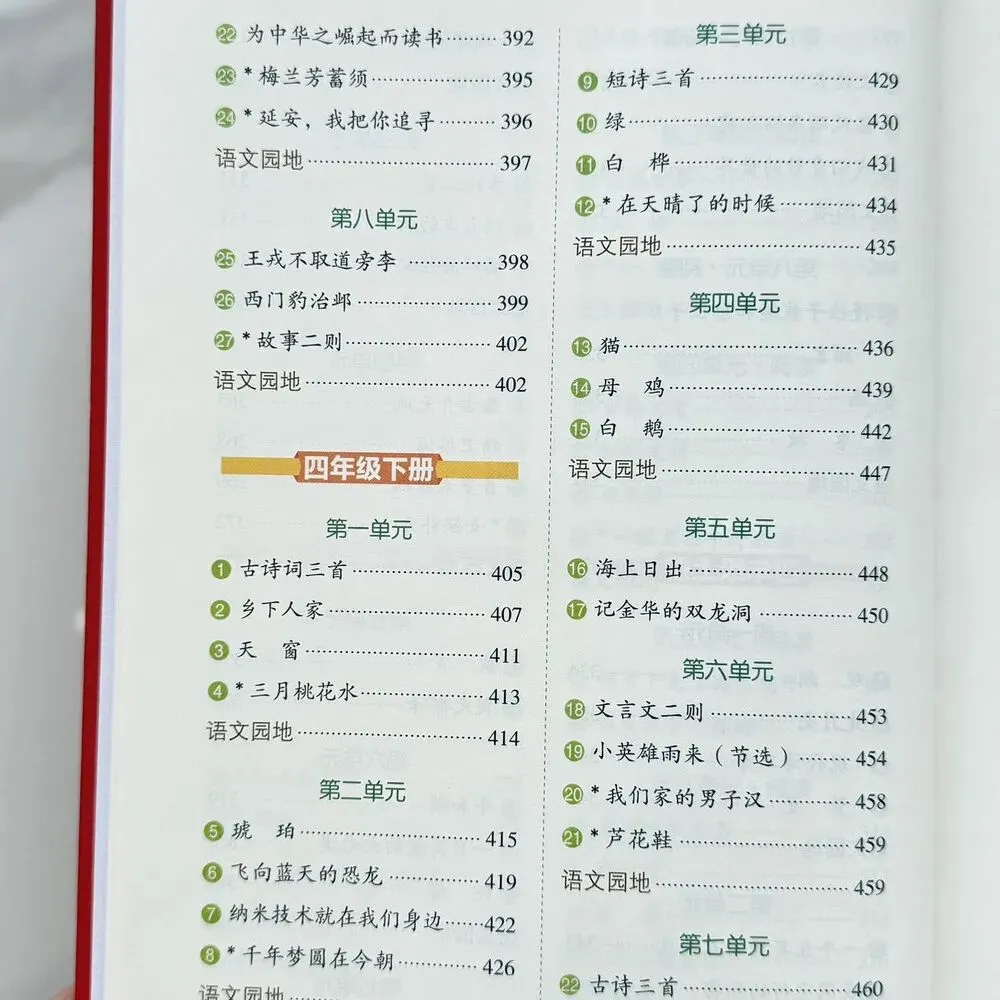 22 为中华之崛起而读书 ········ 392
23 *梅兰芳蓄须 ········ 395
24 *延安，我把你追寻 ········ 396
语文园地 ········ 397
第八单元
25 王戎不取道旁李 ········ 398
26 西门豹治邺 ········ 399
27 *故事二则 ········ 402
语文园地 ········ 402
四年级下册
第一单元
1 古诗词三首 ········ 405
2 乡下人家 ········ 407
3 天 窗 ········ 411
4 *三月桃花水 ········ 413
语文园地 ········ 414
第二单元
5 琥 珀 ········ 415
6 飞向蓝天的恐龙 ········ 419
7 纳米技术就在我们身边 ········ 422
8 *千年梦圆在今朝 ········ 426
语文园地
第三单元
9 短诗三首 ········ 429
10 绿 ········ 430
11 白 桦 ········ 431
12 *在天晴了的时候 ········ 434
语文园地 ········ 435
第四单元
13 猫 ········ 436
14 母 鸡 ········ 439
15 白 鹅 ········ 442
语文园地 ········ 447
第五单元
16 海上日出 ········ 448
17 记金华的双龙洞 ········ 450
第六单元
18 文言文二则 ········ 453
19 小英雄雨来（节选） ········ 454
20 *我们家的男子汉 ········ 458
21 *芦花鞋 ········ 459
语文园地 ········ 459
第七单元
22 古诗三首 ········ 460